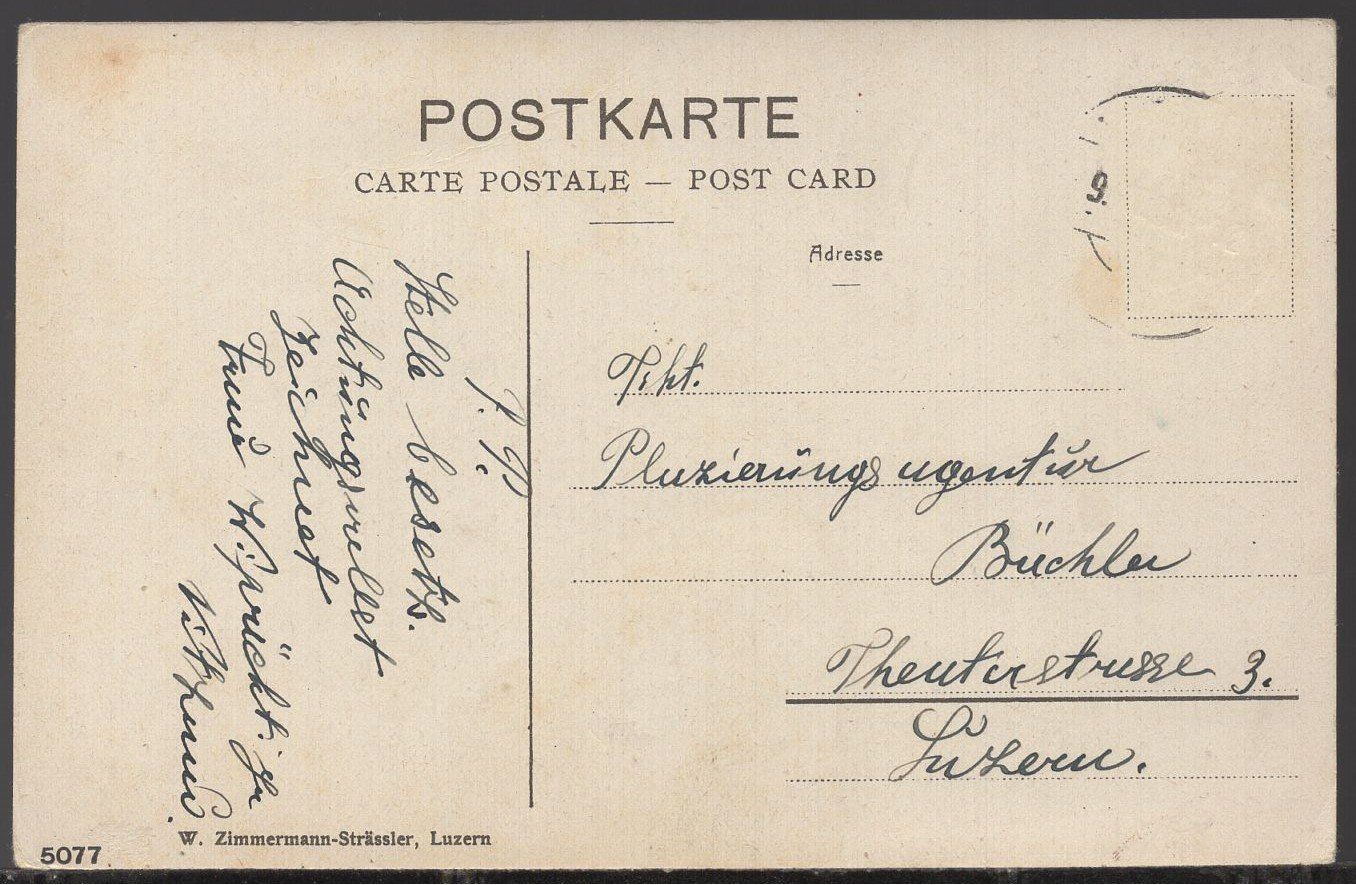 POSTKARTE
CARTE POSTALE — POST CARD
Adresse
9.
Tit.
Plazierungsagentur
Büchler
Theaterstrasse 3.
Luzern.
P. P.
Stelle besetzt.
Achtungsvollst
zeichnet
Frau
Vitznau.
W. Zimmermann-Strässler, Luzern
5077